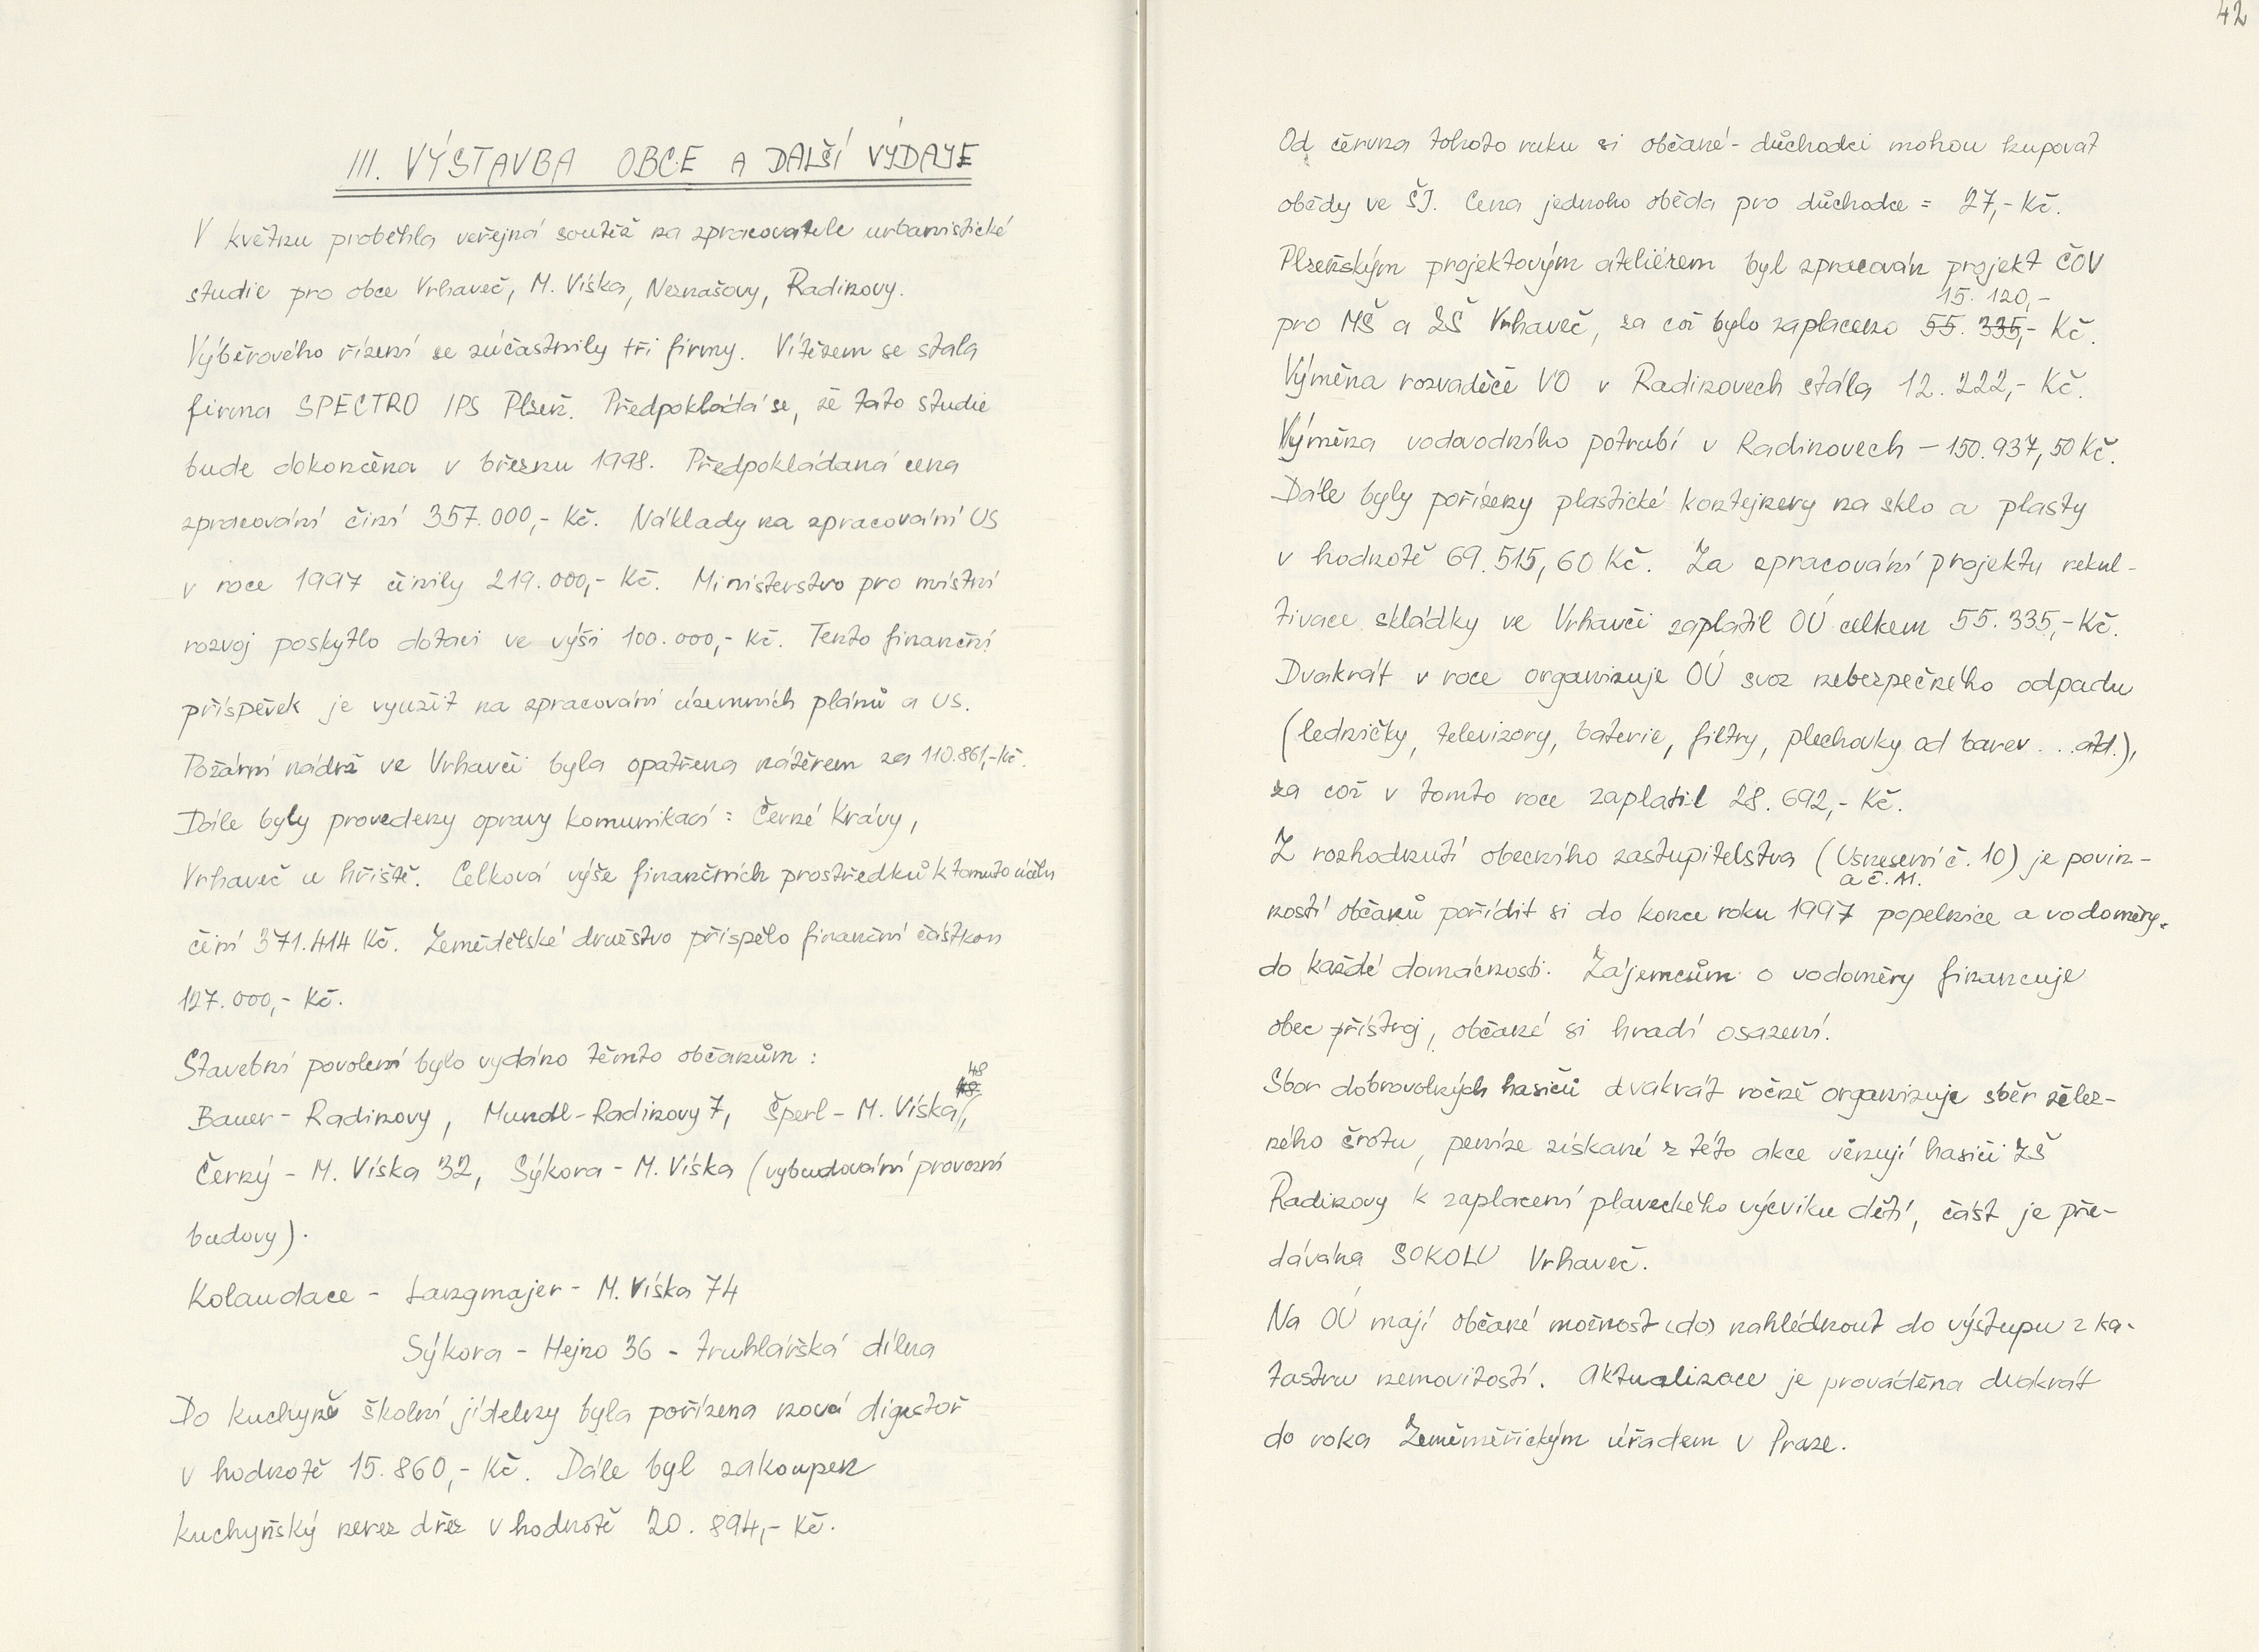 III. VÝSTAVBA OBCE A DALŠÍ VÝDAJE
V květnu proběhla veřejná soutěž na zpracovatele urbanistické
studie pro obce Vrhaveč, M. Víska, Neznašovy, Radinovy.
Výběrového řízení se zúčastnily tři firmy. Vítězem se stala
firma SPECTRO IPS Plzeň. Předpokládá se, že tato studie
bude dokončena v březnu 1998. Předpokládaná cena
zpracování činí 357.000,- Kč. Náklady na zpracování US
v roce 1997 činily 219.000,- Kč. Ministerstvo pro místní
rozvoj poskytlo dotaci ve výši 100.000,- Kč. Tento finanční
příspěvek je využit na zpracování územních plánů a US.
Požární nádrž ve Vrhavči byla opatřena nátěrem za 110.861,- Kč.
Dále byly provedeny opravy komunikací: Černé Krávy,
Vrhaveč u hřiště. Celková výše finančních prostředků k tomuto účelu
činí 371.414 Kč. Zemědělské družstvo přispělo finanční částkou
127.000,- Kč.
Stavební povolení bylo vydáno těmto občanům:
48
Bauer - Radinovy, Mundl - Radinovy 7, Šperl - M. Víska,
Černý - M. Víska 32, Sýkora - M. Víska (vybudování provozní
budovy).
Kolaudace - Langmajer - M. Víska 74
Sýkora - Hejno 36 - truhlářská dílna
Do kuchyně školní jídelny byla pořízena nová digestoř
v hodnotě 15.860,- Kč. Dále byl zakoupen
kuchyňský nerez dřez v hodnotě 20.894,- Kč.
42
Od června tohoto roku si občané - důchodci mohou kupovat
obědy ve ŠJ. Cena jednoho oběda pro důchodce = 27,- Kč.
Plzeňským projektovým ateliérem byl zpracován projekt ČOV
15.120,-
pro MŠ a ZŠ Vrhaveč, za což bylo zaplaceno 55.335,- Kč.
Výměna rozvaděče VO v Radinovech stála 12.222,- Kč.
Výměna vodovodního potrubí v Radinovech - 150.937,50 Kč.
Dále byly pořízeny plastické kontejnery na sklo a plasty
v hodnotě 69.515,60 Kč. Za zpracování projektu rekul-
tivace skládky ve Vrhavči zaplatil OÚ celkem 55.335,- Kč.
Dvakrát v roce organizuje OÚ svoz nebezpečného odpadu
(ledničky, televizory, baterie, filtry, plechovky od barev...atd.),
za což v tomto roce zaplatil 28.692,- Kč.
Z rozhodnutí obecního zastupitelstva (Usnesení č. 10) je povin-
a č. 11.
ností občanů pořídit si do konce roku 1997 popelnice a vodoměry.
do každé domácnosti. Zájemcům o vodoměry financuje
obec přístroj, občané si hradí osazení.
Sbor dobrovolných hasičů dvakrát ročně organizuje sběr želez-
ného šrotu, peníze získané z této akce věnují hasiči ZŠ
Radinovy k zaplacení plaveckého výcviku dětí, část je pře-
dávána SOKOLU Vrhaveč.
Na OÚ mají občané možnost (do) nahlédnout do výstupu z ka-
tastru nemovitostí. Aktualizace je prováděna dvakrát
do roka Zeměměřickým úřadem v Praze.